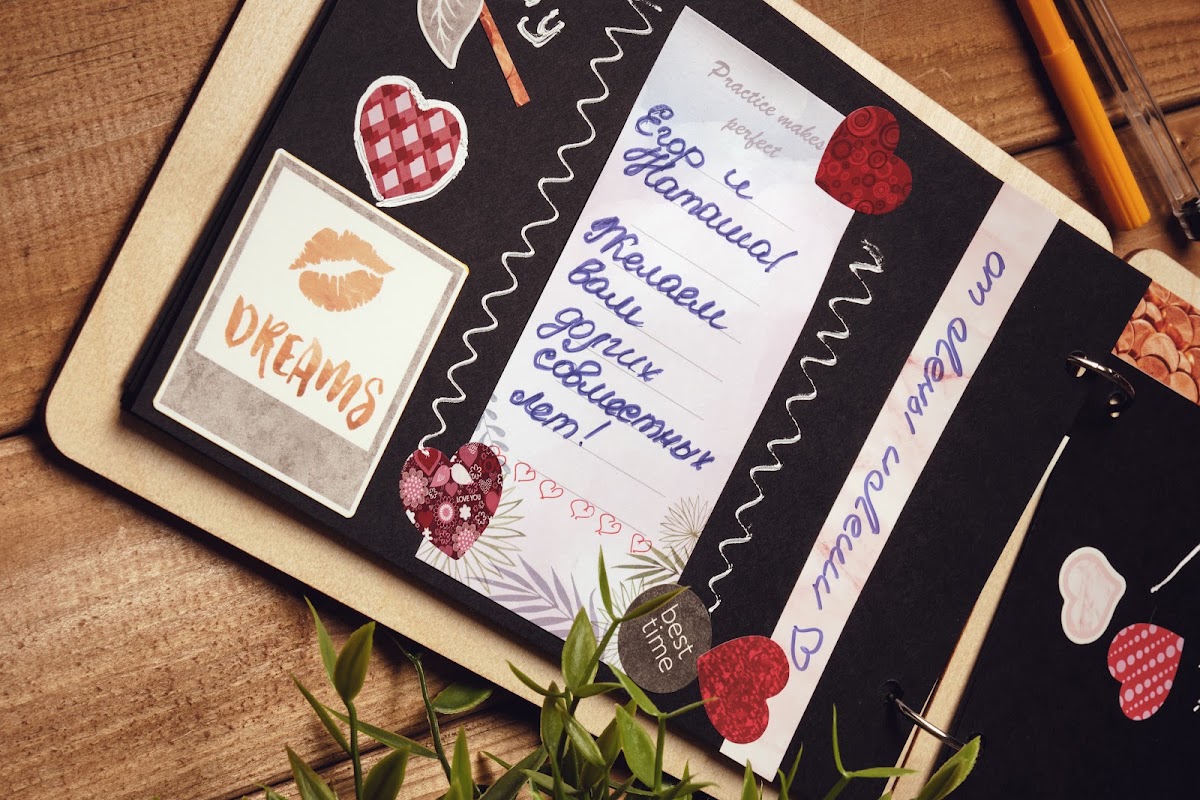 Practice makes
perfect
Егор и
Наташа!
Желаем
вам
долгих
совместных
лет!
DREAMS
LOVE YOU
best
time
от Алены и Алеши ♡